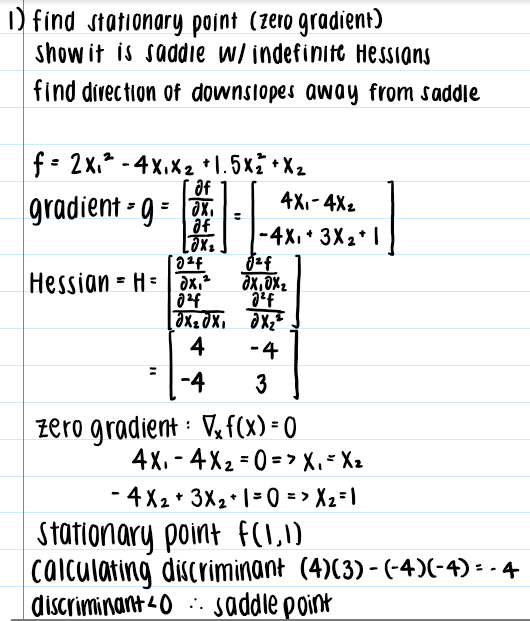 1) find stationary point (zero gradient)
show it is saddle w/ indefinite Hessians
find direction of downslopes away from saddle
f = 2x₁² - 4x₁x₂ + 1.5x₂² + x₂
gradient = g = [∂f/∂x₁; ∂f/∂x₂] = [4x₁ - 4x₂; -4x₁ + 3x₂ + 1]
Hessian = H = [∂²f/∂x₁² ∂²f/∂x₁∂x₂; ∂²f/∂x₂∂x₁ ∂²f/∂x₂²]
= [4 -4; -4 3]
zero gradient : ∇ₓf(x) = 0
4x₁ - 4x₂ = 0 => x₁ = x₂
- 4x₂ + 3x₂ + 1 = 0 => x₂ = 1
stationary point f(1,1)
calculating discriminant (4)(3) - (-4)(-4) = - 4
discriminant < 0 ∴ saddle point